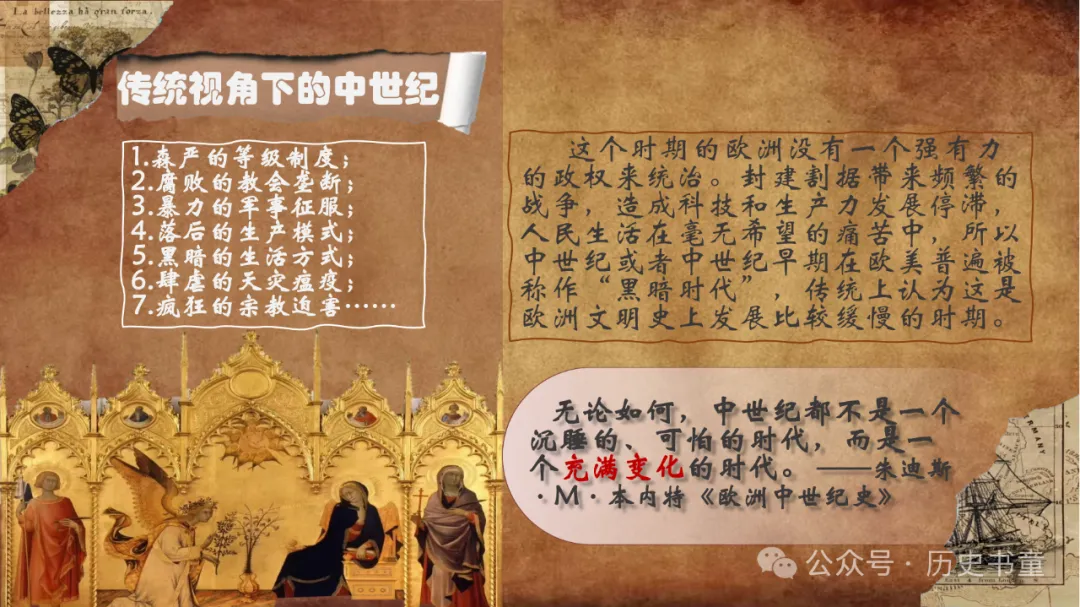 La bellezza ha gran forza.
传统视角下的中世纪
1.森严的等级制度；
2.腐败的教会垄断；
3.暴力的军事征服；
4.落后的生产模式；
5.黑暗的生活方式；
6.肆虐的天灾瘟疫；
7.疯狂的宗教迫害……
这个时期的欧洲没有一个强有力
的政权来统治。封建割据带来频繁的
战争，造成科技和生产力发展停滞，
人民生活在毫无希望的痛苦中，所以
中世纪或者中世纪早期在欧美普遍被
称作“黑暗时代”，传统上认为这是
欧洲文明史上发展比较缓慢的时期。
无论如何，中世纪都不是一个
沉睡的、可怕的时代，而是一
个充满变化的时代。——朱迪斯
·M·本内特《欧洲中世纪史》
公众号·历史书童